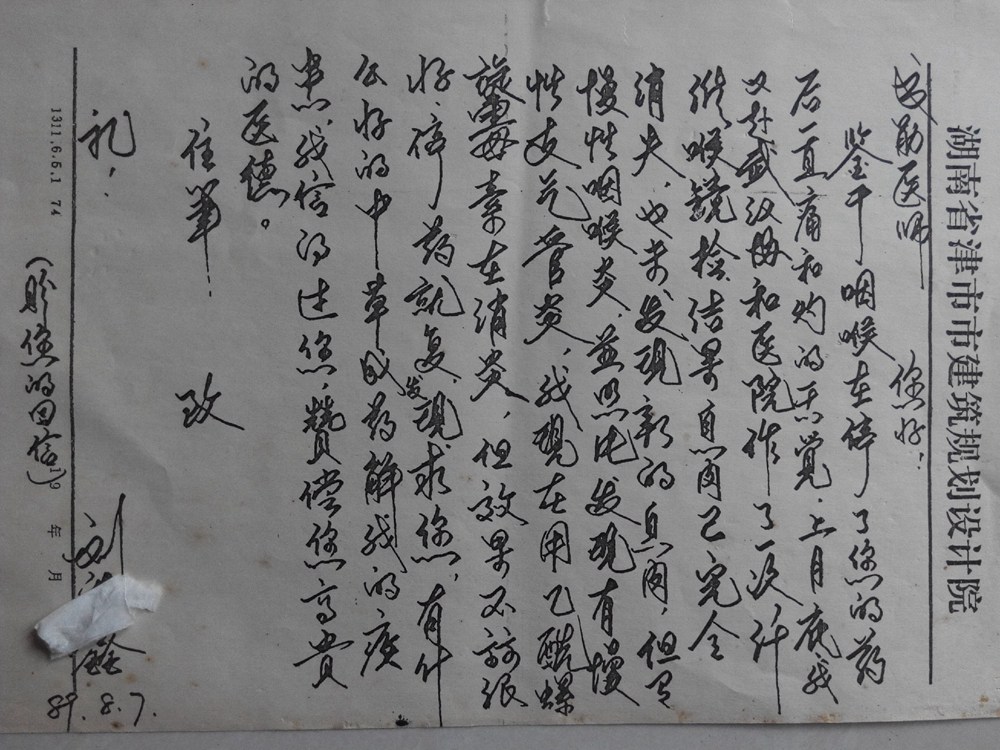 湖南省津市市建筑规划设计院
勋医师 您好!
鉴于咽喉在停了您的药
后一直痛和灼的感觉,上月底我
又赴武汉协和医院作了一次纤
维喉镜检结果息肉已完全
消失,也未发现新的息肉,但有
慢性咽喉炎,并照片发现有慢
性支气管炎,我现在用乙酰螺
旋霉素在消炎,但效果不很
好,停药就复发,现求您,有什
么好的中草成药解我的疾
患,我信的过您,赞偿您高贵
的医德。
住笔! 致
礼!
刘
89.8.7.
(盼您的回信)
1311.6.5.1 74
19 年 月